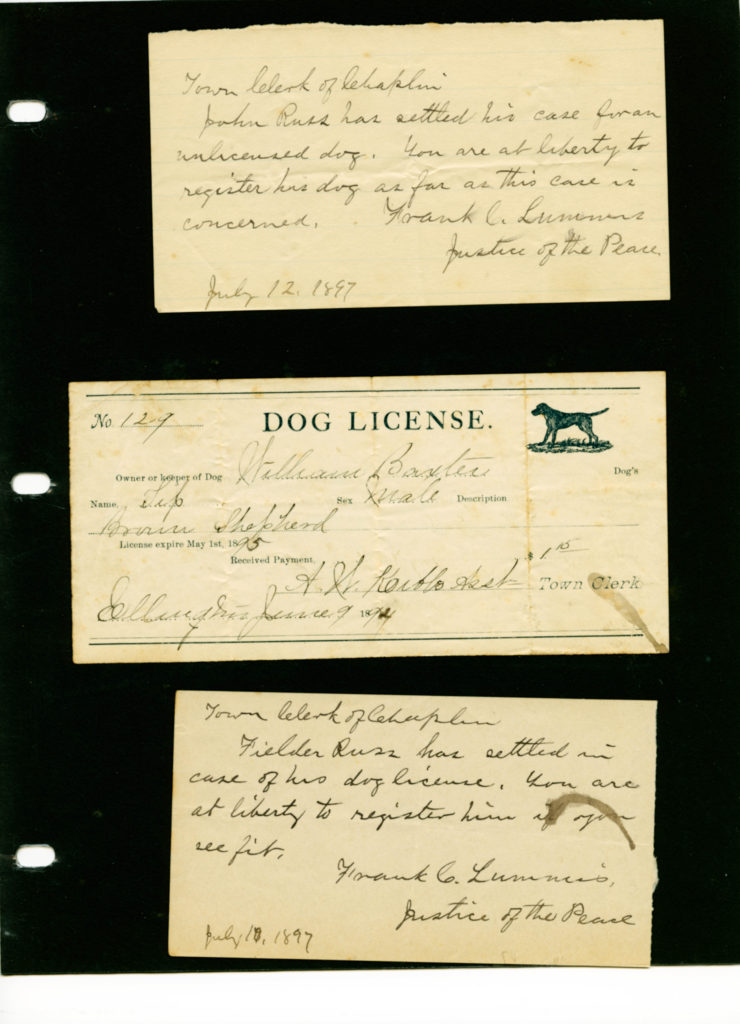 Town Clerk of Chaplin
John Russ has settled his case for an
unlicensed dog. You are at liberty to
register his dog as far as this case is
concerned. Frank C. Lummis
Justice of the Peace
July 12, 1897
No. 129 DOG LICENSE.
Owner or keeper of Dog William Baxter Dog's
Name, Tip Sex Male Description
Brown Shepherd
License expire May 1st, 1895
Received Payment, $1 15
A. W. Asst Town Clerk
Ellington June 9 1894
Town Clerk of Chaplin
Fielder Russ has settled in
case of his dog license. You are
at liberty to register him if you
see fit.
Frank C. Lummis,
Justice of the Peace
July 1897